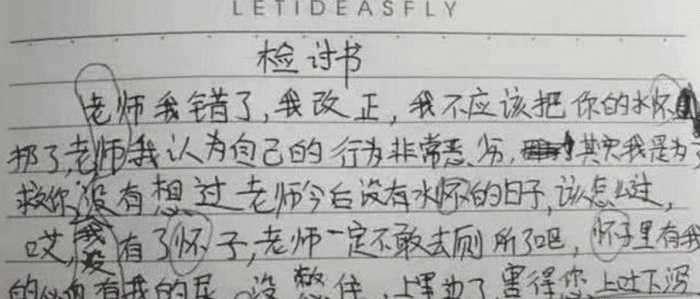 LETIDEASFLY
检讨书
老师我错了,我改正,我不应该把你的水怀
扔了,老师我认为自己的行为非常恶劣,其实我是为了
救你,没有想过老师今后没有水怀的日子,该怎么过,
哎,我没有了怀子,老师一定不敢去厕所了吧,怀子里有我
有我的尿,没憋住,上里边了,害得您上吐下泻